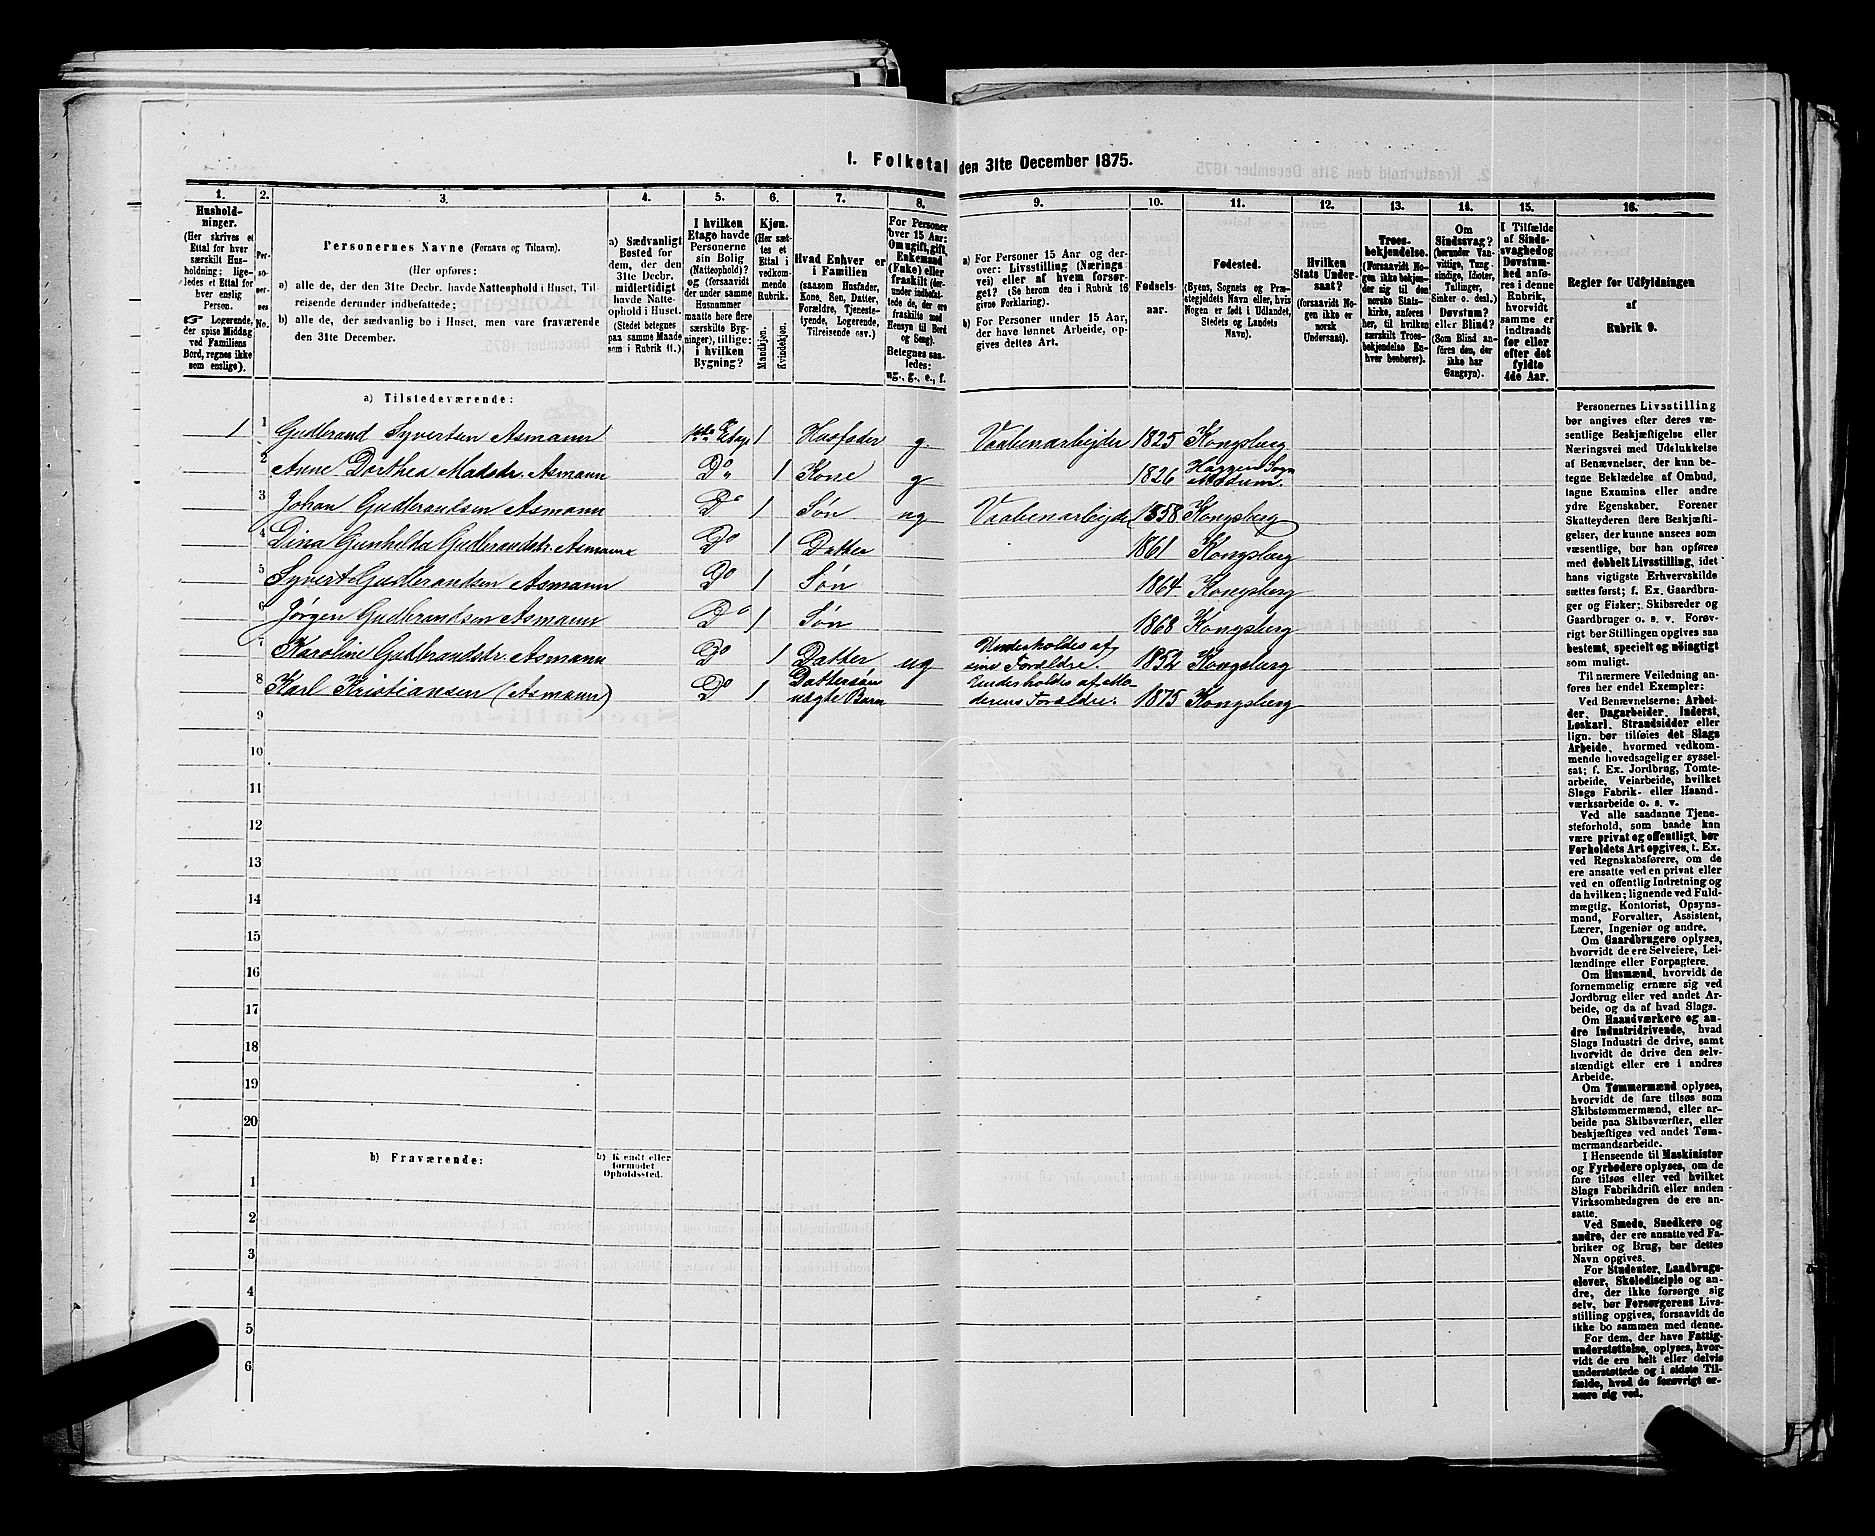 1. Folketal den 31te December 1875.
1. 2. 3. 4. 5. 6. 7. 8. 9. 10. 11. 12. 13. 14. 15. 16.
Hushold-
ninger.
(Her skrives et
Ettal for hver
særskilt Hus-
holdning; lige-
ledes et Ettal for
hver enslig
Person.
☞ Logerende,
der spise Middag
ved Familiens
Bord, regnes ikke
som enslige).
Per-
so-
ner-
nes
No.
Personernes Navne (Fornavn og Tilnavn).
(Her opføres:
a) alle de, der den 31te Decbr. havde Natteophold i Huset, Til-
reisende derunder indbefattede;
b) alle de, der sædvanlig bo i Huset, men vare fraværende
den 31te December.
a) Sædvanligt
Bosted for
dem, der den
31te Decbr.
midlertidigt
havde Natte-
ophold i Huset.
(Stedet betegnes
paa samme Maade
som i Rubrik 11.)
I hvilken
Etage havde
Personerne
sin Bolig
(Natteophold)?
og (forsaavidt
der under samme
Husnummer
maatte høre flere
særskilte Byg-
ninger), tillige:
i hvilken
Bygning?
Kjøn.
(Her sæt-
tes et
Ettal i
vedkom-
mende
Rubrik.
Mandkjøn.
Kvindekjøn.
Hvad Enhver er
i Familien
(saasom Husfader,
Kone, Søn, Datter,
Forældre, Tjeneste-
tyende, Logerende,
Tilreisende osv.)
For Personer
over 15 Aar:
Om ugift, gift,
Enkemand
(Enke) eller
fraskilt (der-
under indbefat-
tede de, der ere
fraskilte med
Hensyn til Bord
og Seng).
Betegnes saa-
ledes:
ug., g., e., f.
a) For Personer 15 Aar og der-
over: Livsstilling (Nærings-
vei) eller af hvem forsør-
get? (Se herom den i Rubrik 16
givne Forklaring).
b) For Personer under 15 Aar,
der have lønnet Arbeide, op-
gives dettes Art.
Fødsels-
aar.
Fødested.
(Byens, Sognets og Præ-
stegjeldets Navn eller, hvis
Nogen er født i Udlandet,
Stedets og Landets
Navn).
Hvilken
Stats Under-
saat?
(forsaavidt No-
gen ikke er
norsk
Undersaat).
Troes-
bekjendelse.
(Forsaavidt No-
gen ikke bekjen-
der sig til den
norske Stats-
kirke, anføres
her, til hvilken
særskilt Troes-
bekjendelse En-
hver henhører).
Om
Sindssvag?
(herunder Van-
vittige, Tung-
sindige, Idioter,
Tullinger,
Sinker o. desl.)
Døvstum?
eller Blind?
(Som Blind an-
føres den, der
ikke har
Gangsyn).
I Tilfælde
af Sinds-
svaghed og
Døvstum-
hed anfø-
res i denne
Rubrik,
hvorvidt
samme er
indtraadt
før eller
efter det
fyldte
4de Aar.
Regler for Udfyldningen
af
Rubrik 9.
a) Tilstedeværende:
1 1 Gudbrand Syvertsen Asmann 1ste Etage 1 Husfader g. Vaabenarbejder 1825 Kongsberg
2 Anne Dorthea Madsdtr. Asmann Do 1 Kone g 1826 Haggen Sogn Modum.
3 Johan Gudbrandsen Asmann Do 1 Søn ug Vaabenarbejder 1858 Kongsberg
4 Dina Gunhilda Gudbrandsdtr. Asmann Do 1 Datter 1861 Kongsberg
5 Syvert Gudbrandsen Asmann Do 1 Søn 1864 Kongsberg
6 Jørgen Gudbrandsen Asmann Do 1 Søn 1868 Kongsberg
7 Karoline Gudbrandsdtr. Asmann Do 1 Datter ug Underholdes af sine Forældre. 1852 Kongsberg
8 Karl Kristiansen (Asmann) Do 1 Dattersøn uægte Barn Underholdes af Moderens Forældre. 1875 Kongsberg
9
10
11
12
13
14
15
16
17
18
19
20
b) Fraværende:
b) Kjendt eller
formodet
Opholdssted.
1
2
3
4
5
6
Personernes Livsstilling
bør angives efter deres væ-
sentlige Beskjæftigelse eller
Næringsvei med Udelukkelse
af Benævnelser, der kun be-
tegne Beklædelse af Ombud,
tagne Examina eller andre
ydre Egenskaber. Forener
Skatteyderen flere Beskjæfti-
gelser, der kunne ansees som
væsentlige, bør han opføres
med dobbelt Livsstilling, idet
hans vigtigste Erhvervskilde
sættes først; f. Ex. Gaardbru-
ger og Fisker; Skibsreder og
Gaardbruger o. s. v. Forøv-
rigt bør Stillingen opgives saa
bestemt, specielt og nøiagtigt
som muligt.
Til nærmere Veiledning an-
føres her endel Exempler:
Ved Benævnelserne: Arbei-
der, Dagarbeider, Inderst,
Løskarl, Strandsidder eller
lign. bør tilføies det Slags
Arbeide, hvormed vedkom-
mende hovedsagelig er syssel-
sat; f. Ex. Jordbrug, Tomte-
arbeide, Veiarbeide, hvilket
Slags Fabrik- eller Haand-
værksarbeide o. s. v.
Ved alle saadanne Tjene-
steforhold, som baade kan
være privat og offentligt, bør
Forholdets Art opgives, f. Ex.
ved Regnskabsførere, om de
ere ansatte ved en privat eller
ved en offentlig Indretning og
da hvilken; lignende ved Fuld-
mægtig, Kontorist, Opsyns-
mand, Forvalter, Assistent,
Lærer, Ingeniør og andre.
Om Gaardbrugere oplyses,
hvorvidt de ere Selveiere, Lei-
lændinge eller Forpagtere.
Om Husmænd, hvorvidt de
fornemmelig ernære sig ved
Jordbrug eller ved andet Ar-
beide, og da af hvad Slags.
Om Haandværkere og an-
dre Industridrivende, hvad
Slags Industri de drive, samt
hvorvidt de drive den selv-
stændigt eller ere i andres
Arbeide.
Om Tømmermænd oplyses,
hvorvidt de fare tilsøs som
Skibstømmermænd, eller ar-
beide paa Skibsværfter, eller
beskjæftiges ved andet Tøm-
mermandsarbeide.
I Henseende til Maskinister
og Fyrbødere oplyses, om de
fare tilsøs eller ved hvilket
Slags Fabrikdrift eller anden
Virksomhedsgren de ere an-
satte.
Ved Smede, Snedkere og
andre, der ere ansatte ved Fa-
briker og Brug, bør dettes
Navn opgives.
For Studenter, Landbrugs-
elever, Skoledisciple og an-
dre, der ikke forsørge sig
selv, bør Forsørgerens Livs-
stilling opgives, forsaavidt de
ikke bo sammen med denne.
For dem, der have Fattig-
understøttelse, oplyses, hvor-
vidt de ere helt eller delvis
understøttede og i sidste Til-
fælde, hvad de forøvrigt er-
nære sig ved.